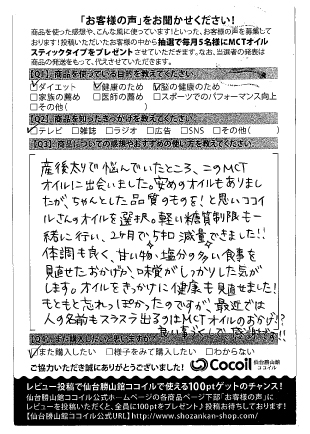 「お客様の声」をお聞かせください！
商品を使った感想や、こんな風に使っています！といった、お客様の声を募集して
おります！投稿いただいたお客様の中から抽選で毎月5名様にMCTオイル
スティックタイプをプレゼントさせていただきます。なお、当選者の発表は
商品の発送をもって、代えさせていただきます。
【Q1】商品を使っている目的を教えてください
☑ダイエット ☑健康のため ☑脳の健康のため
□家族の薦め □医師の薦め □スポーツでのパフォーマンス向上
□その他( )
【Q2】商品を知ったきっかけを教えてください
☑テレビ □雑誌 □ラジオ □広告 □SNS □その他( )
【Q3】商品についての感想やおすすめの使い方を教えてください
産後太りで悩んでいたところ、このMCT
オイルに出会いました。安めのオイルもありまし
たが、ちゃんとした品質のものを！と思いココイ
ルさんのオイルを選択。軽い糖質制限も一
緒に行い、2ヶ月で5キロ減量できました!!
体調も良く、甘い物、塩分の多い食事を
見直せたおかげか、味覚がしっかりした気が
します。オイルをきっかけに健康も見直せました!
もともと忘れっぽかったのですが、最近では
人の名前もスラスラ出るのはMCTオイルのおかげ!?
良い事づくしで感謝です!!
【Q4】また購入したいと思いますか
☑また購入したい □様子をみて購入したい □わからない
ご協力いただき誠にありがとうございました！ Cocoil 仙台勝山館 ココイル
レビュー投稿で仙台勝山館ココイルで使える100ptゲットのチャンス！
仙台勝山館ココイル公式ホームページの各商品ページ下部“お客様の声”に
レビューを投稿いただくと、全員に100ptをプレゼント♪投稿お待ちしております！
【仙台勝山館ココイル公式URL】http://www.shozankan-shop.com/